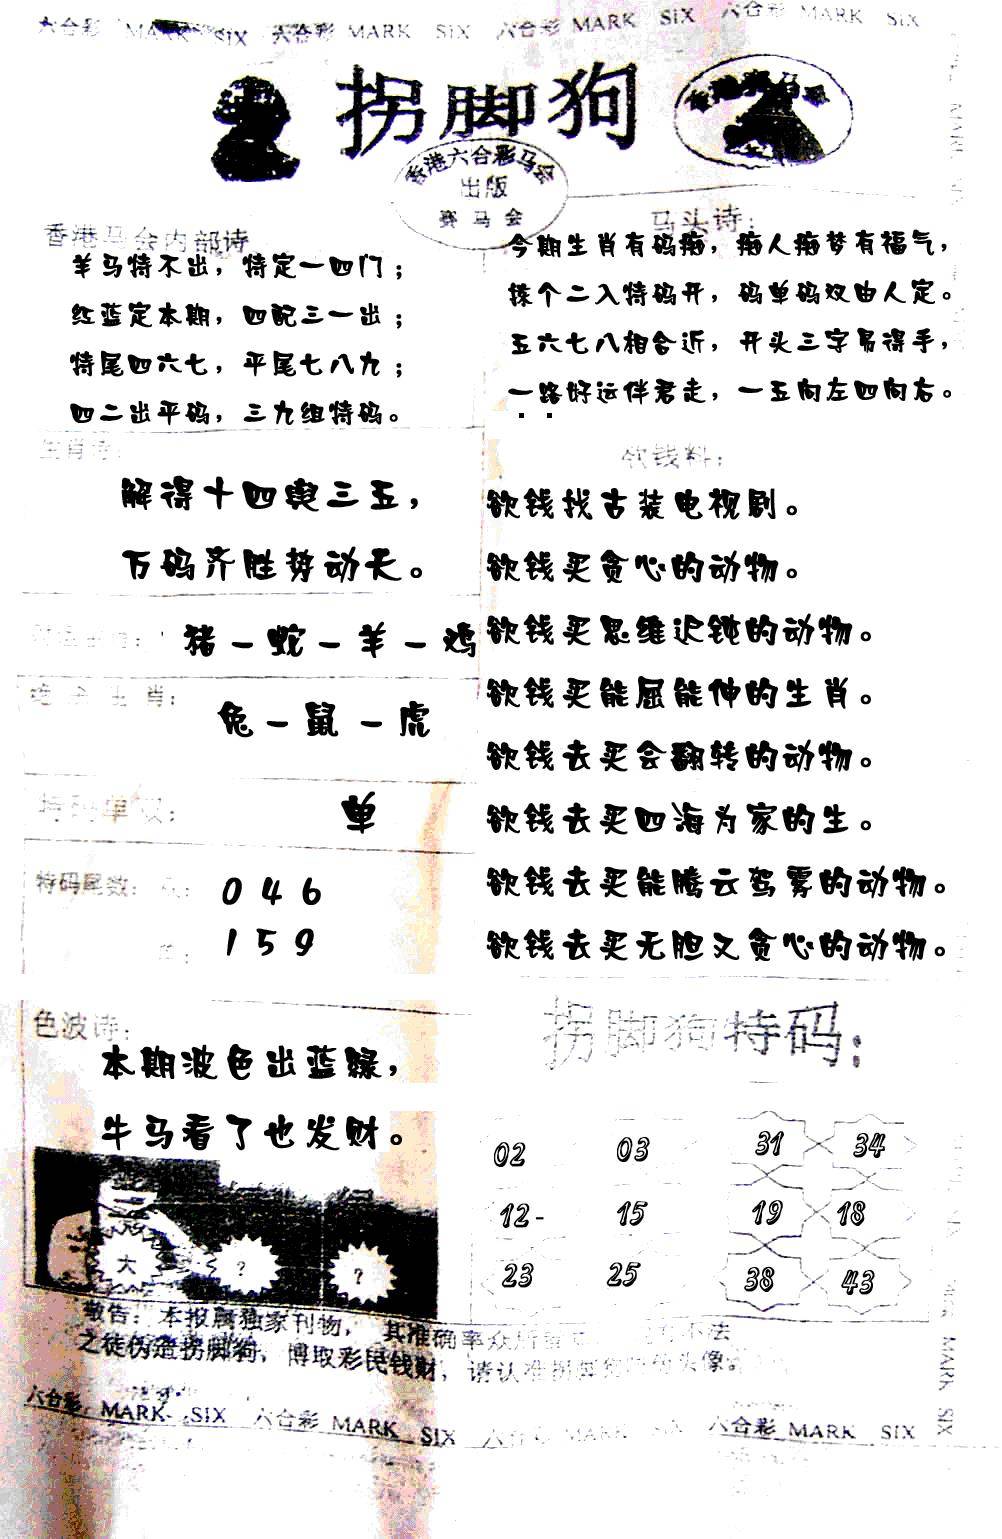 六合彩 MARK SIX 六合彩 MARK SIX 六合彩 MARK SIX 六合彩 MARK SIX
拐脚狗
香港六合彩马会
出版
赛马会
香港马会内部诗
羊马特不出，特定一四门；
红蓝定本期，四配三一出；
特尾四六七，平尾七八九；
四二出平码，三九组特码。
马头诗：
今期生肖有码痴，痴人痴梦有福气，
择个二入特码开，码单码双由人定。
五六七八相合近，开头三字易得手，
一路好运伴君走，一五向左四向右。
生肖诗：
解得十四舆三五，
万码齐胜势动天。
猪－蛇－羊－鸡
生肖：
兔－鼠－虎
特码单双：
单
特码尾数：
0 4 6
1 5 9
欲钱料：
欲钱找古装电视剧。
欲钱买贪心的动物。
欲钱买思维迟钝的动物。
欲钱买能屈能伸的生肖。
欲钱去买会翻转的动物。
欲钱去买四海为家的生。
欲钱去买能腾云驾雾的动物。
欲钱去买无胆又贪心的动物。
色波诗：
本期波色出蓝绿，
牛马看了也发财。
大 ? ?
拐脚狗特码：
02 03 31 34
12- 15 19 18
23 25 38 43
敬告：本报属独家刊物，其准确率众所 不法
之徒伪造拐脚狗，博取彩民钱财，请认准拐脚 头像。
六合彩 MARK SIX 六合彩 MARK SIX 六合彩 MARK SIX 六合彩 MARK SIX
MARK
MARK SIX